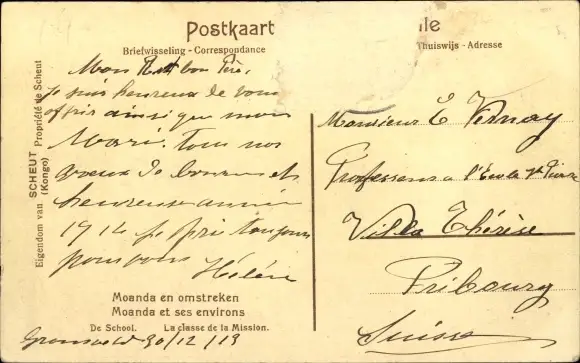 Postkaart
Briefwisseling - Correspondance
le
Thuiswijs - Adresse
Eigendom van SCHEUT Propriété de Scheut
(Kongo)
Mon bon Père,
je suis heureuse de vous
offrir ainsi que mon
Mari. Tous nos
voeux de bonne et
heureuse année
1914 je prie toujours
pour vous
Hélène
Monsieur E Vernay
Professeur à l'École St Pierre
Villa Thérèse
Fribourg
Suisse
Moanda en omstreken
Moanda et ses environs
De School. La classe de la Mission.
30/12/13